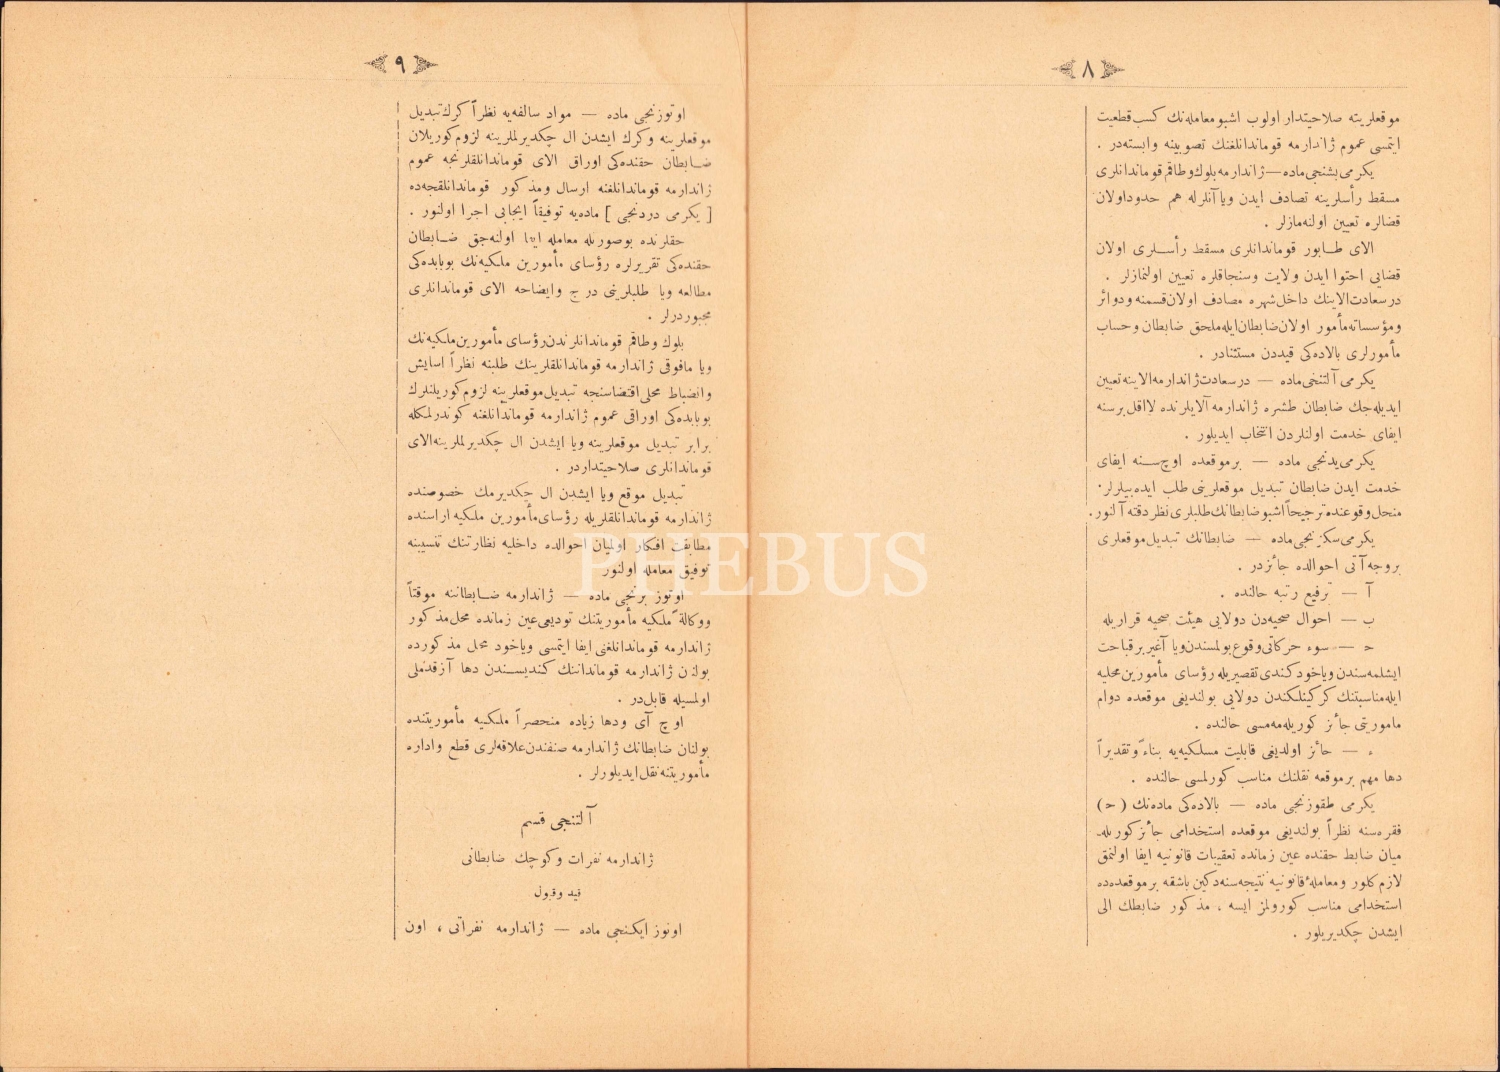 ٨
موقعلرینه صلاحیتدار اولوب اشبو معامله‌نك كسب قطعیت
ایتمسی عموم ژاندارمه قوماندانلغنك تصویبنه وابسته‌در .
یكرمی بشنجی ماده — ژاندارمه بلوك وطاقم قوماندانلری
مسقط رأسلرینه تصادف ایدن ویا آنلرله هم حدود اولان
قضالره تعیین اولنه‌مازلر .
الای طابور قوماندانلری مسقط رأسلری اولان
قضایی احتوا ایدن ولایت وسنجاقلره تعیین اولنمازلر .
درسعادت الاینك داخل شهره مصادف اولان قسمنه ودوائر
ومؤسساته مأمور اولان ضابطان ایله ملحق ضابطان وحساب
مأمورلری بالاده‌كی قیددن مستثنادر .
یكرمی آلتنجی ماده — درسعادت ژاندارمه الاینه تعیین
ایدیله‌جك ضابطان طشره ژاندارمه آلایلرنده لااقل برسنه
ایفای خدمت اولنلردن انتخاب ایدیلور .
یكرمی یدنجی ماده — برموقعده اوچ سنه ایفای
خدمت ایدن ضابطان تبدیل موقعلرینی طلب ایده‌بیلرلر .
منحل وقوعنده ترجیحاً اشبو ضابطانك طلبلری نظر دقته آلنور .
یكرمی سكزنجی ماده — ضابطانك تبدیل موقعلری
بروجه آتی احوالده جائزدر .
آ — ترفیع رتبه حالنده .
ب — احوال صحیه‌دن دولایی هیئت صحیه قراریله
ح — سوء حركاتی وقوع بولمسندن ویا آغیر برقباحت
ایشلمه‌سندن ویاخود كندی تقصیریله رؤسای مأمورین محلیه
ایله مناسبتنك كركینلكندن دولایی بولندیغی موقعده دوام
ماموریتی جائز كوریله‌مه‌مسی حالنده .
ء — حائز اولدیغی قابلیت مسلكیه‌یه بناءً وتقدیراً
دها مهم برموقعه نقلنك مناسب كورلمسی حالنده .
یكرمی طقوزنجی ماده — بالاده‌كی ماده‌نك (ح)
فقره‌سنه نظراً بولندیغی موقعده استخدامی جائز كوریله‌
میان ضابط حقنده عین زمانده تعقیبات قانونیه ایفا اولنمق
لازم كلور ومعاملهٔ قانونیه نتیجه‌سنه دكین باشقه برموقعده‌ده
استخدامی مناسب كورولمز ایسه ، مذكور ضابطك الی
ایشدن چكدیریلور .
٩
اوتوزنجی ماده — مواد سالفه‌یه نظراً كرك تبدیل
موقعلرینه وكرك ایشدن ال چكدیرلملرینه لزوم كوریلان
ضابطان حقنده‌كی اوراق الای قوماندانلقلرنجه عموم
ژاندارمه قوماندانلغنه ارسال ومذكور قوماندانلقجه‌ده
[ یكرمی دردنجی ] ماده‌یه توفیقاً ایجابی اجرا اولنور .
حقلرنده بوصورتله معامله ایفا اولنه‌جق ضابطان
حقنده‌كی تقریرلره رؤسای مأمورین ملكیه‌نك بوبابده‌كی
مطالعه ویا طلبلرینی درج وایضاحه الای قوماندانلری
مجبوردرلر .
بلوك وطاقم قوماندانلرندن رؤسای مأمورین ملكیه‌نك
ویا مافوقی ژاندارمه قوماندانلقلرینك طلبنه نظراً اسایش
وانضباط محلی اقتضاسنجه تبدیل موقعلرینه لزوم كوریلنلرك
بوبابده‌كی اوراقی عموم ژاندارمه قوماندانلغنه كوندرلمكله
برابر تبدیل موقعلرینه ویا ایشدن ال چكدیرلملرینه الای
قوماندانلری صلاحیتداردر .
تبدیل موقع ویا ایشدن ال چكدیرمك خصوصنده
ژاندارمه قوماندانلقلریله رؤسای مأمورین ملكیه اراسنده
مطابقت افكار اولمیان احوالده داخلیه نظارتنك تنسیبنه
توفیق معامله اولنور
اوتوز برنجی ماده — ژاندارمه ضابطاننه موقتاً
ووكالةً ملكیه مأموریتنك تودیعی عین زمانده محل مذكور
ژاندارمه قوماندانلغنی ایفا ایتمسی ویاخود محل مذكورده
بولنان ژاندارمه قوماندانینك كندیسندن دها آز قدملی
اولمسیله قابل‌در .
اوچ آی ودها زیاده منحصراً ملكیه مأموریتنده
بولنان ضابطانك ژاندارمه صنفندن علاقه‌لری قطع واداره
مأموریتنه نقل ایدیلورلر .
آلتنجی قسم
ژاندارمه نفرات وكوچك ضابطانی
قید وقبول
اوتوز ایكنجی ماده — ژاندارمه نفراتی ، اون
PHEBUS